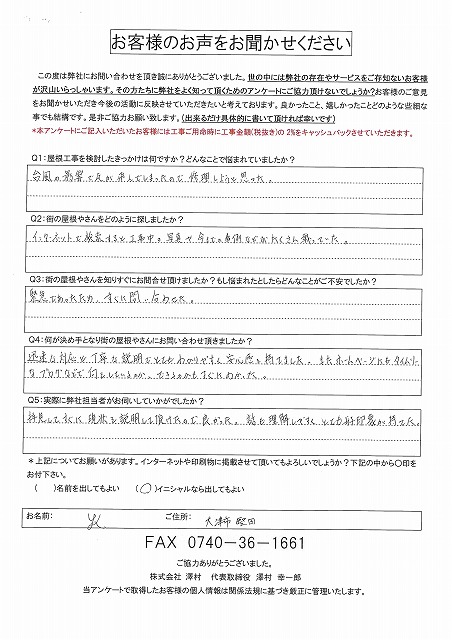 お客様のお声をお聞かせください
この度は弊社にお問い合わせを頂き誠にありがとうございました。世の中には弊社の存在やサービスをご存知ないお客様
が沢山いらっしゃいます。その方たちに弊社をよく知って頂くためのアンケートにご協力頂けないでしょうか？どなたかのご意見
をお聞かせいただき今後の活動に反映させていただきたいと考えております。良かったこと、嬉しかったことどのような些細な
事でも結構です。是非ご協力お願い致します。（出来るだけ具体的に書いて頂ければ幸いです）
*本アンケートにご記入いただいたお客様には工事ご用命時に工事金額(税抜き)の 2%をキャッシュバックさせていただきます。
Q1：屋根工事を検討したきっかけは何ですか？どんなことで悩まれていましたか？
台風の影響で瓦が
してしまったので修理しようと思った。
Q2：街の屋根やさんをどのように探しましたか？
インターネットで検索すると工事中の写真や今までの事例などがたくさん載っていた。
Q3：街の屋根やさんを知りすぐにお問合せ頂けましたか？もし悩まれたとしたらどんなことがご不安でしたか？
緊急であったため、すぐに問い合わせた。
Q4：何が決め手となり街の屋根やさんにお問い合わせ頂きましたか？
迅速な対応と丁寧な説明でとてもわかりやすく安心感を持てました。またホームページにもタイムリー
なブログなどで何をしているのか、できるのかもすぐにわかった。
Q5：実際に弊社担当者がお伺いしていかがでしたか？
拝見してすぐに現状を説明して頂けたので良かった。話も理解しやすく、とても好印象が持てた。
*上記についてお願いがあります。インターネットや印刷物に掲載させて頂いてもよろしいでしょうか？下記の中から〇印を
お付下さい。
（　）名前を出してもよい　（〇）イニシャルなら出してもよい
お名前：　ご住所：　大津市堅田
FAX 0740-36-1661
ご協力ありがとうございました。
株式会社 澤村　代表取締役 澤村 幸一郎
当アンケートで取得したお客様の個人情報は関係法規に基づき厳正に管理いたします。